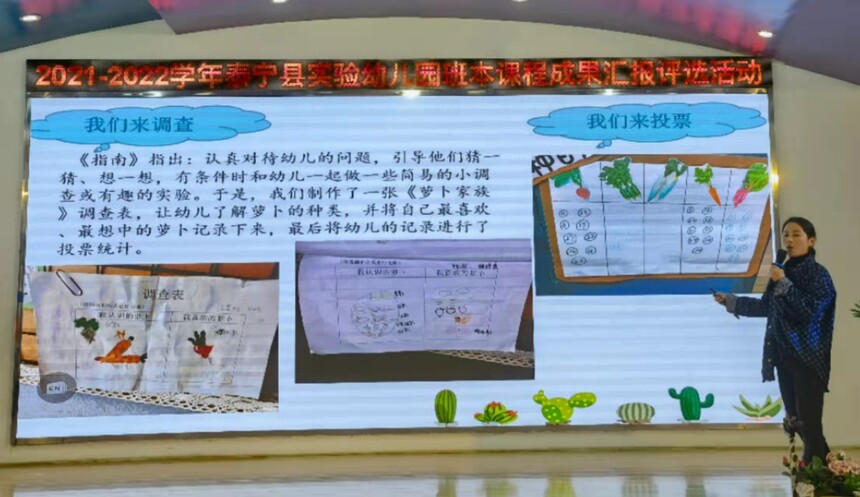 2021-2022学年泰宁县实验幼儿园班本课程成果汇报评选活动
我们来调查
《指南》指出：认真对待幼儿的问题，引导他们猜一
猜、想一想，有条件时和幼儿一起做一些简易的小调
查或有趣的实验。于是，我们制作了一张《萝卜家族
》调查表，让幼儿了解萝卜的种类，并将自己最喜欢
、最想中的萝卜记录下来，最后将幼儿的记录进行了
投票统计。
我们来投票
调查表
我认识的萝卜
我喜欢的萝卜
我认识的萝卜
我喜欢的萝卜